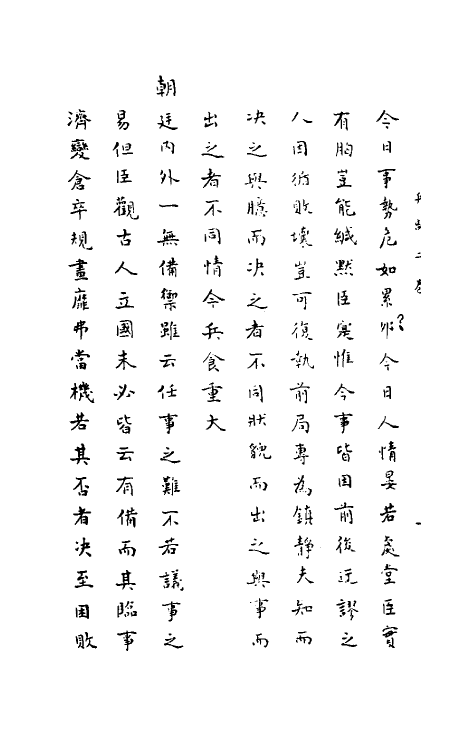 今日事勢危如累卵今日人情晏若處堂臣實
有胸豈能緘默臣寔惟今事皆因前後玩謬之
人因循敗壞豈可復執前局專為鎮靜夫知而
决之與臆而决之者不同狀貌而出之與事而
出之者不同情今兵食重大
朝廷内外一無備禦雖云任事之難不若議事之
易但臣觀古人立國未必皆云有備而其臨事
濟變倉卒規畫靡弗當機若其否者决至困敗